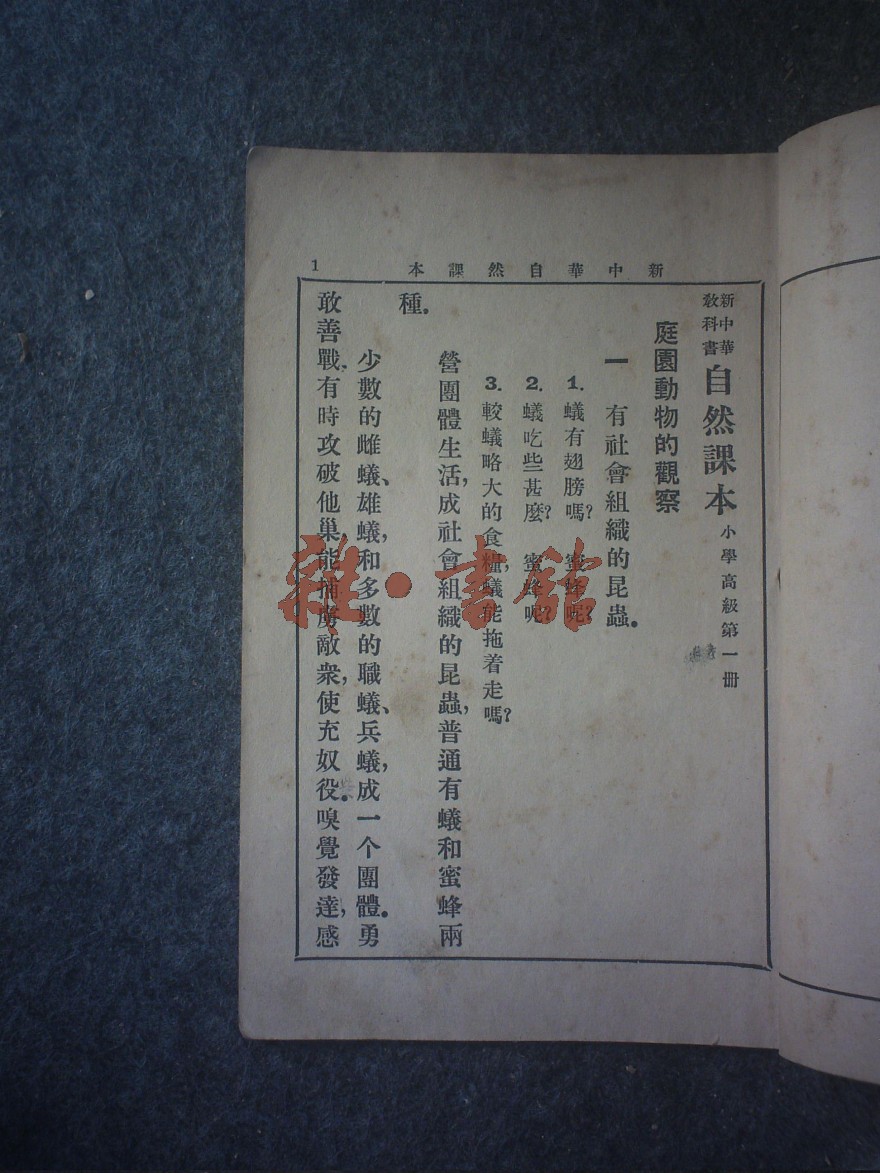 新中華自然課本
1
新中華
教科書
自然課本 小學高級第一册
庭園動物的觀察
一 有社會組織的昆蟲。
1. 蟻有翅膀嗎？蜜蜂呢？
2. 蟻吃些甚麼？蜜蜂呢？
3. 較蟻略大的食糧，蟻能拖着走嗎？
營團體生活，成社會組織的昆蟲，普通有蟻和蜜蜂兩
種。
少數的雌蟻、雄蟻，和多數的職蟻、兵蟻，成一个團體。勇
敢善戰，有時攻破他巢，能捕虜敵衆，使充奴役。嗅覺發達，感
雜·書館